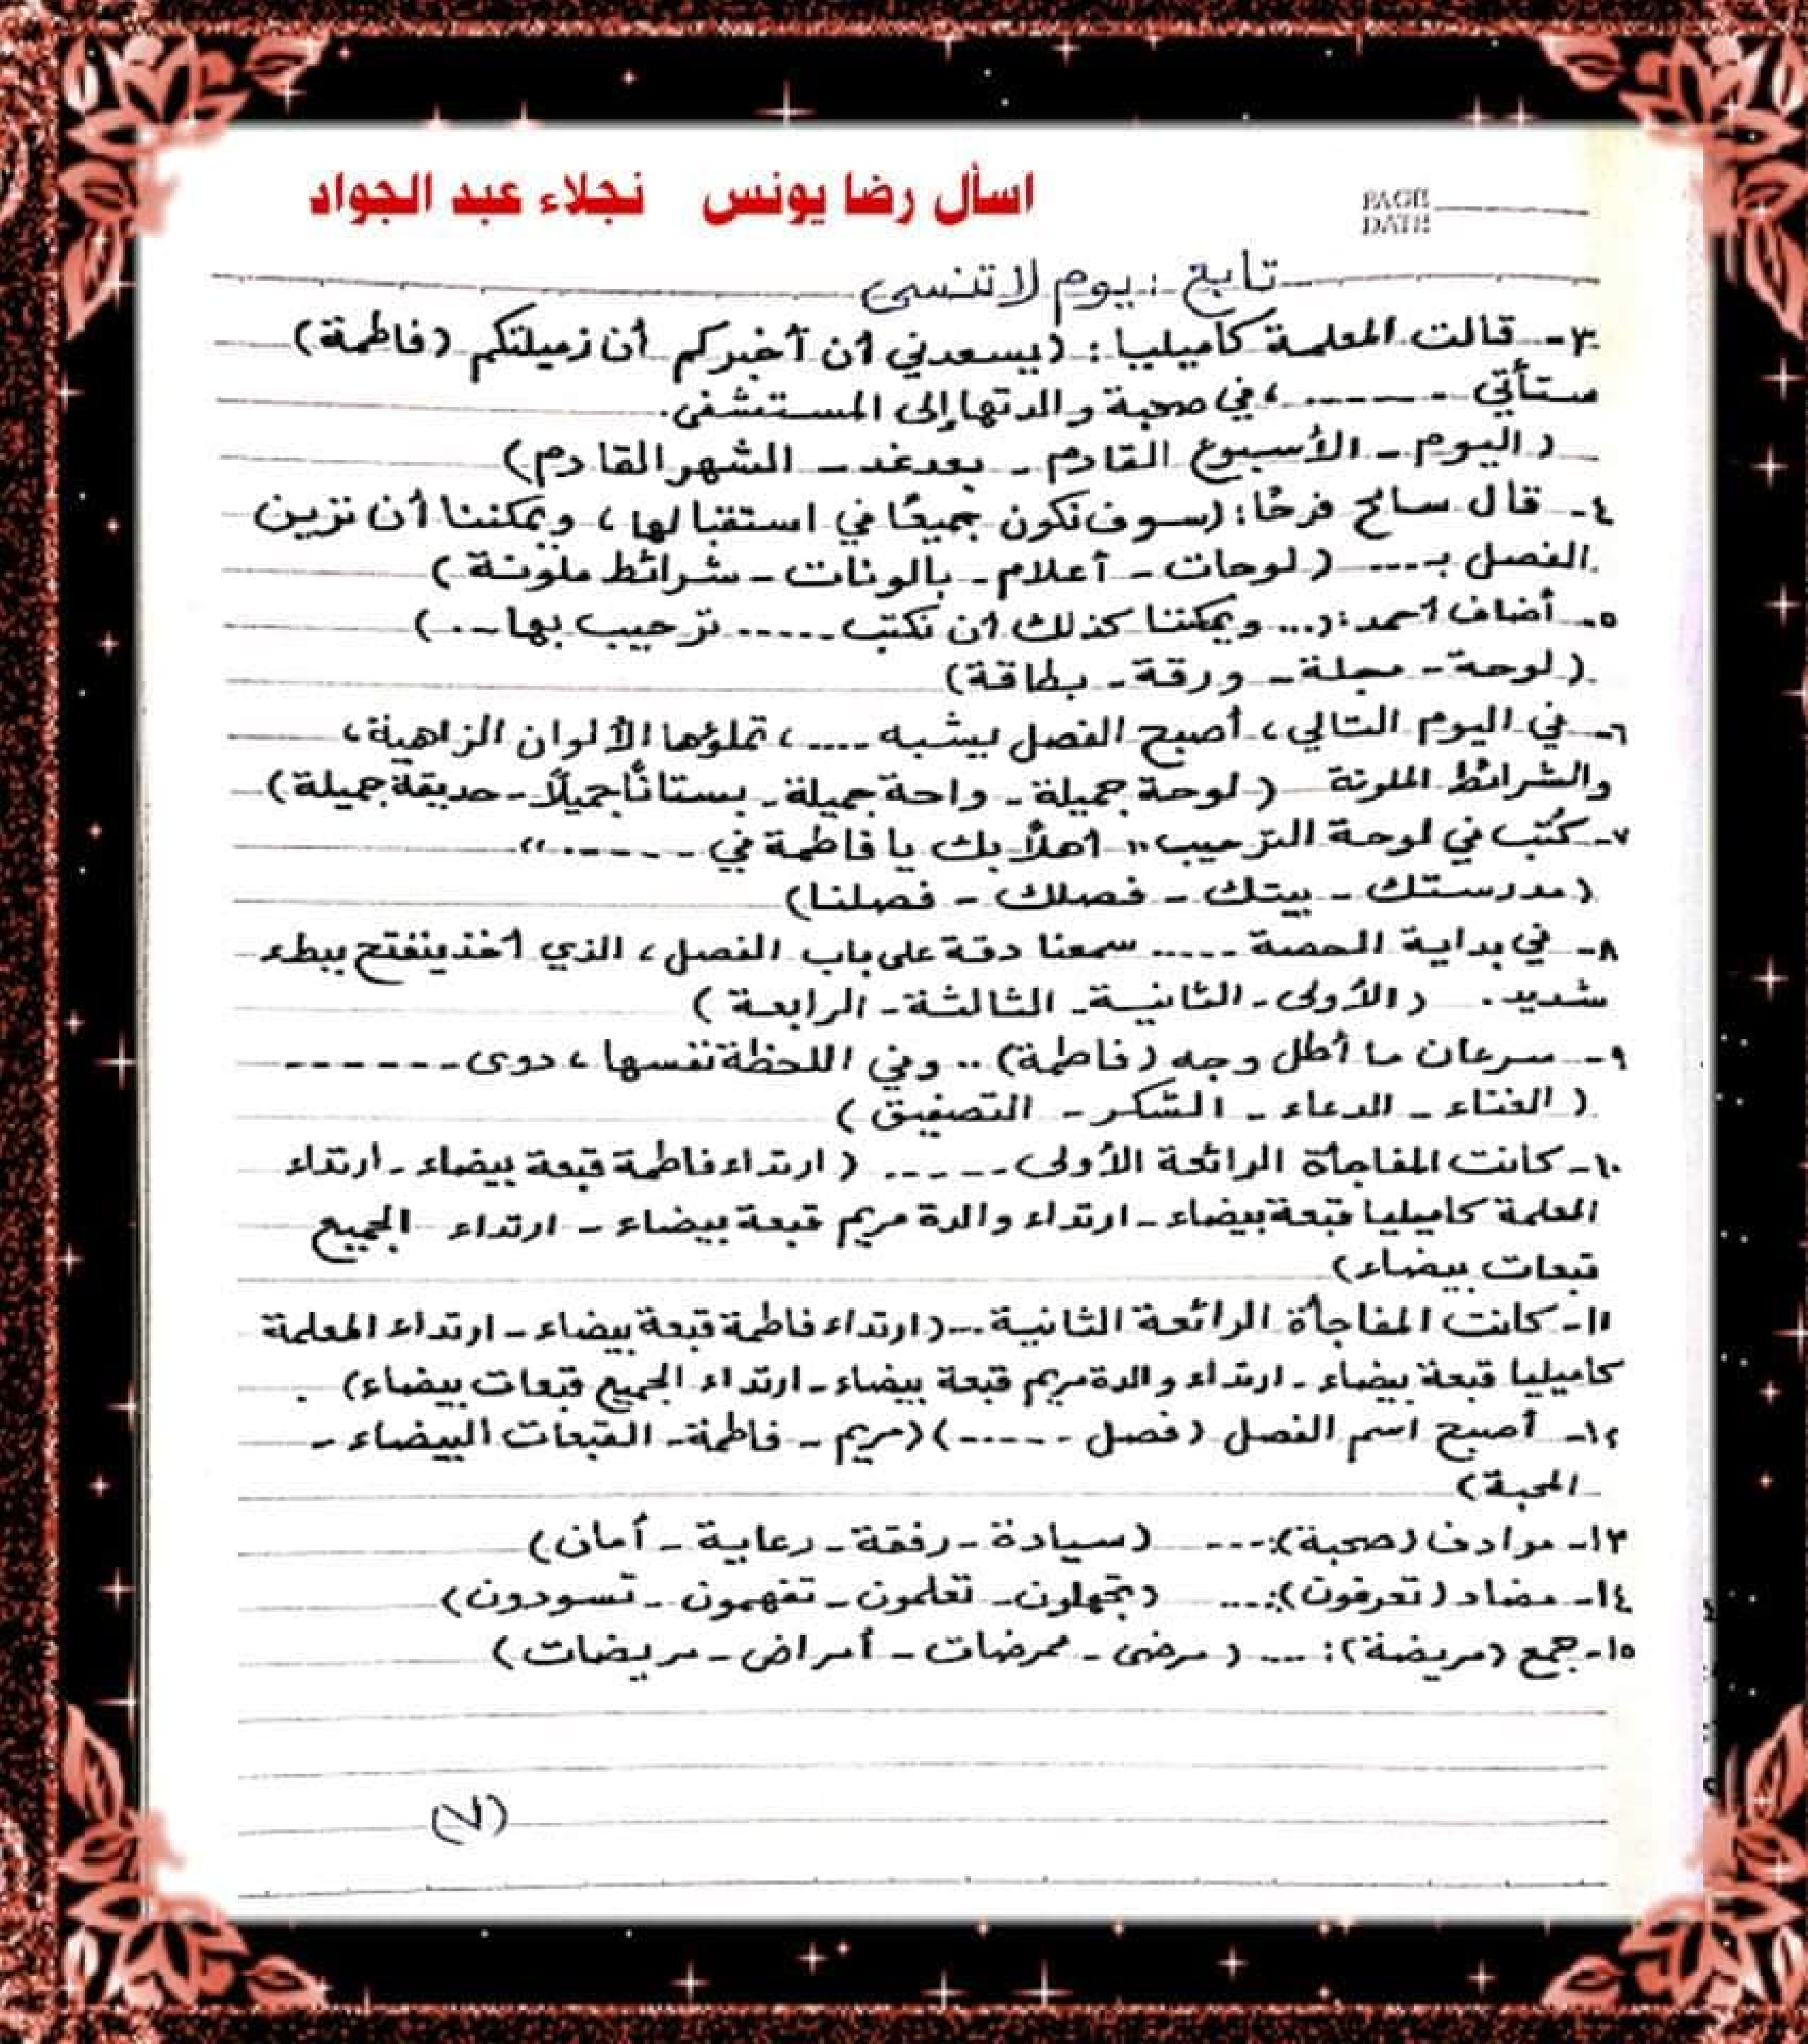 اسأل رضا يونس نجلاء عبد الجواد
PAGE
DATE
تابع : يوم لا تنسى
٣- قالت المعلمة كاميليا : (يسعدني أن أخبركم أن زميلتكم (فاطمة)
ستأتي ------، في صحبة والدتها إلى المستشفى.
( اليوم - الأسبوع القادم - بعد غد - الشهر القادم )
٤- قال سامح فرحًا : (سوف نكون جميعًا في استقبالها، ويمكننا أن نزين
الفصل بـ .... ( لوحات - أعلام - بالونات - شرائط ملونة )
٥- أضاف أحمد : (... ويمكننا كذلك أن نكتب ..... ترحيب بها ...)
( لوحة - مجلة - ورقة - بطاقة )
٦- في اليوم التالي، أصبح الفصل يشبه ....، تملؤها الألوان الزاهية،
والشرائط الملونة ( لوحة جميلة - واحة جميلة - بستانًا جميلًا - حديقة جميلة )
٧- كُتب في لوحة الترحيب " أهلًا بك يا فاطمة في ------"
( مدرستك - بيتك - فصلك - فصلنا )
٨- في بداية الحصة ..... سمعنا دقة على باب الفصل، الذي أخذ ينفتح ببطء
شديد. ( الأولى - الثانية - الثالثة - الرابعة )
٩- سرعان ما أطل وجه (فاطمة) .. وفي اللحظة نفسها، دوى -------
( الغناء - الدعاء - الشكر - التصفيق )
١٠- كانت المفاجأة الرائعة الأولى ----- ( ارتداء فاطمة قبعة بيضاء - ارتداء
المعلمة كاميليا قبعة بيضاء - ارتداء والدة مريم قبعة بيضاء - ارتداء الجميع
قبعات بيضاء )
١١- كانت المفاجأة الرائعة الثانية ... ( ارتداء فاطمة قبعة بيضاء - ارتداء المعلمة
كاميليا قبعة بيضاء - ارتداء والدة مريم قبعة بيضاء - ارتداء الجميع قبعات بيضاء ) .
١٢- أصبح اسم الفصل ( فصل ------) ( مريم - فاطمة - القبعات البيضاء -
المحبة )
١٣- مرادف (صحبة): --- ( سيادة - رفقة - رعاية - أمان )
١٤- مضاد (تعرفون): .... ( تجهلون - تعلمون - تفهمون - تسودون )
١٥- جمع (مريضة): ... ( مرضى - ممرضات - أمراض - مريضات )
(٧)